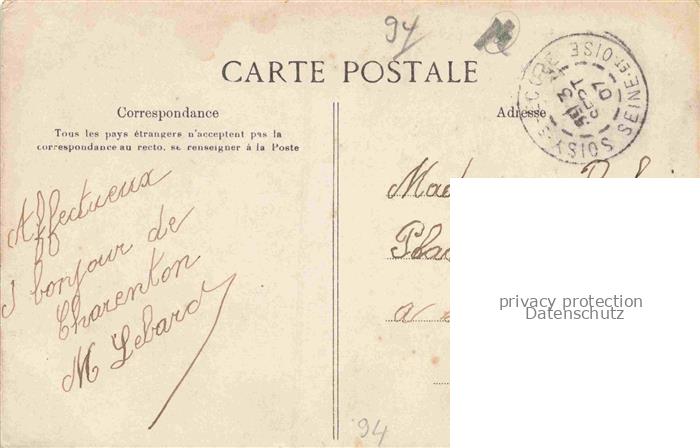 94
CARTE POSTALE
SOISY-S-ÉCOLE SEINE-ET-OISE
3 SEPT
07
Correspondance
Tous les pays étrangers n'acceptent pas la
correspondance au recto, se renseigner à la Poste
Adresse
Affectueux
bonjour de
Charenton
M Lebard
Mad
Plac
a
privacy protection
Datenschutz
94